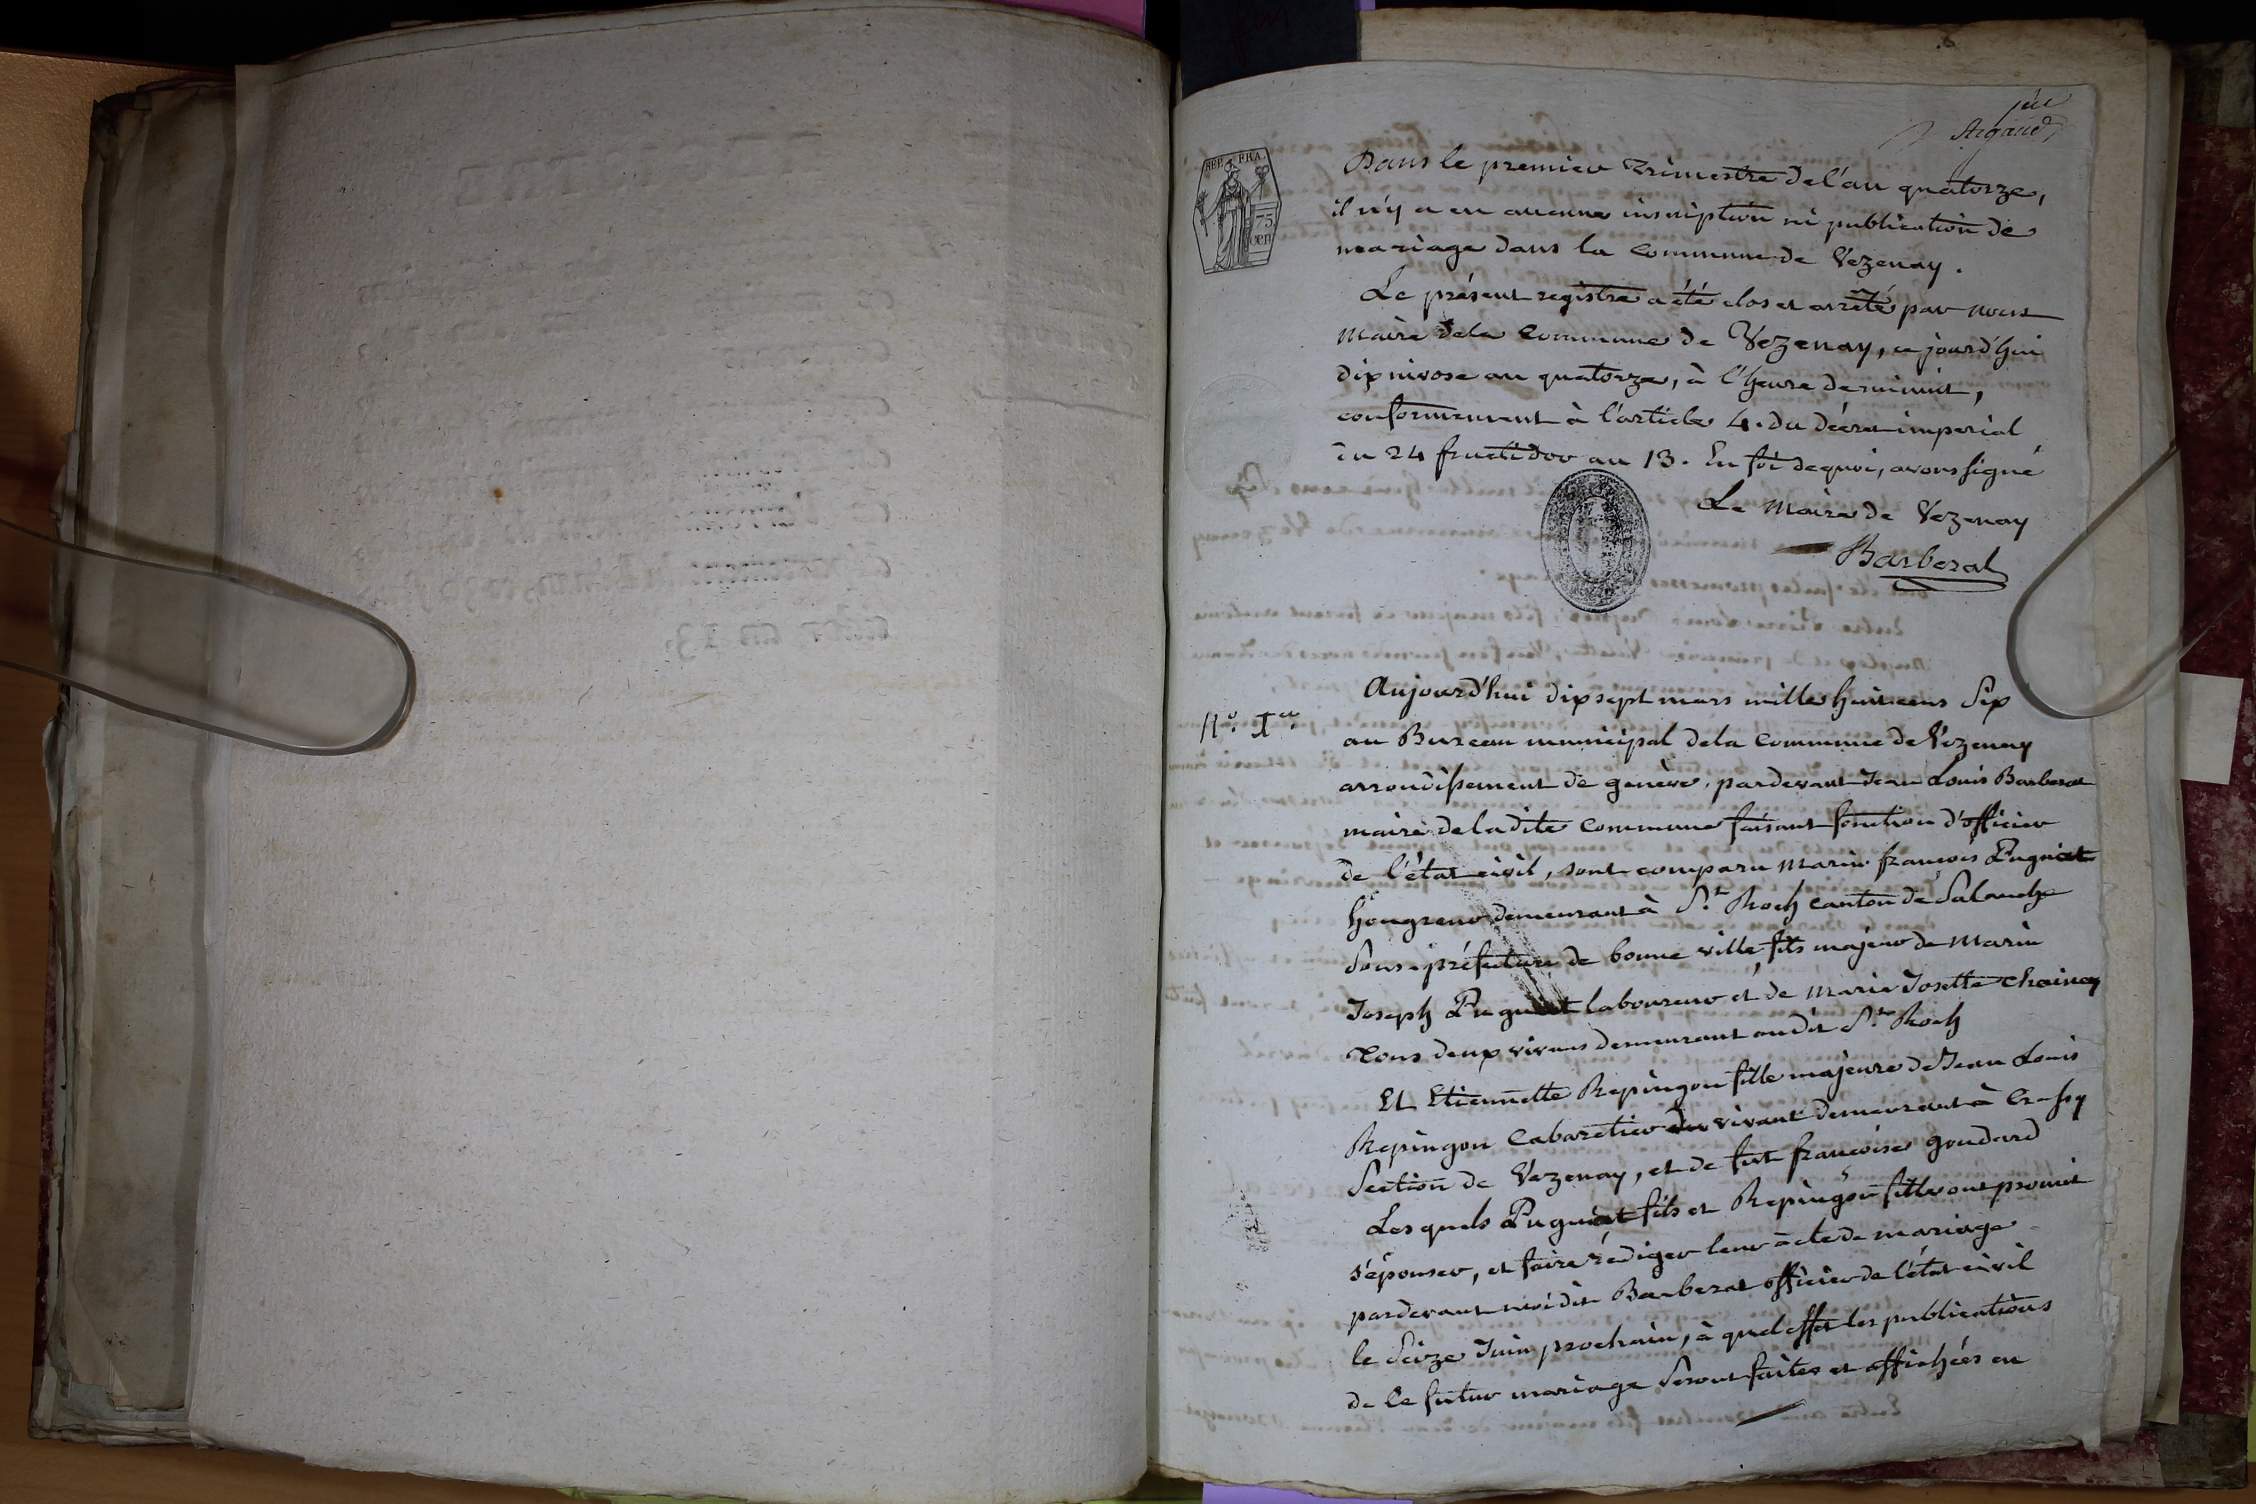 Argaud
REP. FRA.
75
cen
Dans le premier trimestre de l'an quatorze,
il n'y a eu aucune inscription ni publication de
mariage dans la commune de Vezenay.
Le présent registre a été clos et arrêté par nous
Maire de la Commune de Vezenay, ce jourd'hui
dix nivose an quatorze, à l'heure de minuit,
conformement à l'article 4. du décret imperial
du 24 fructidor an 13. En foi de quoi, avons signé
Le Maire de Vezenay
Barberat
N.º 1.er
Aujourd'hui dix sept mars mille huit cens Six
au Bureau municipal de la commune de Vezenay
arrondissement de genève, pardevant Jean Louis Barberat
maire de la dite commune faisant fonction d'officier
de l'état civil, sont comparu Marin françois Pugniet
hongreur demeurant à S.t Roch canton de Salanche
Sous-préfecture de bonne ville, fils majeur de Marin
Joseph Pugniet laboureur et de Marie Josette Chainey
tous deux vivans demeurant audit S.t Roch
Et Etiennette Repingon fille majeure de Jean Louis
Repingon Cabaretier vivant demeurant à Crassy
Section de Vezenay, et de fut françoise goudard
Les quels Pugniet fils et Repingon fille ont promit
s'épouser, et faire rédiger leur acte de mariage
pardevant moi dit Barberat officier de l'état civil
le Seize Juin prochain, à quel effet les publications
de ce futur mariage Seront faites et affichées en